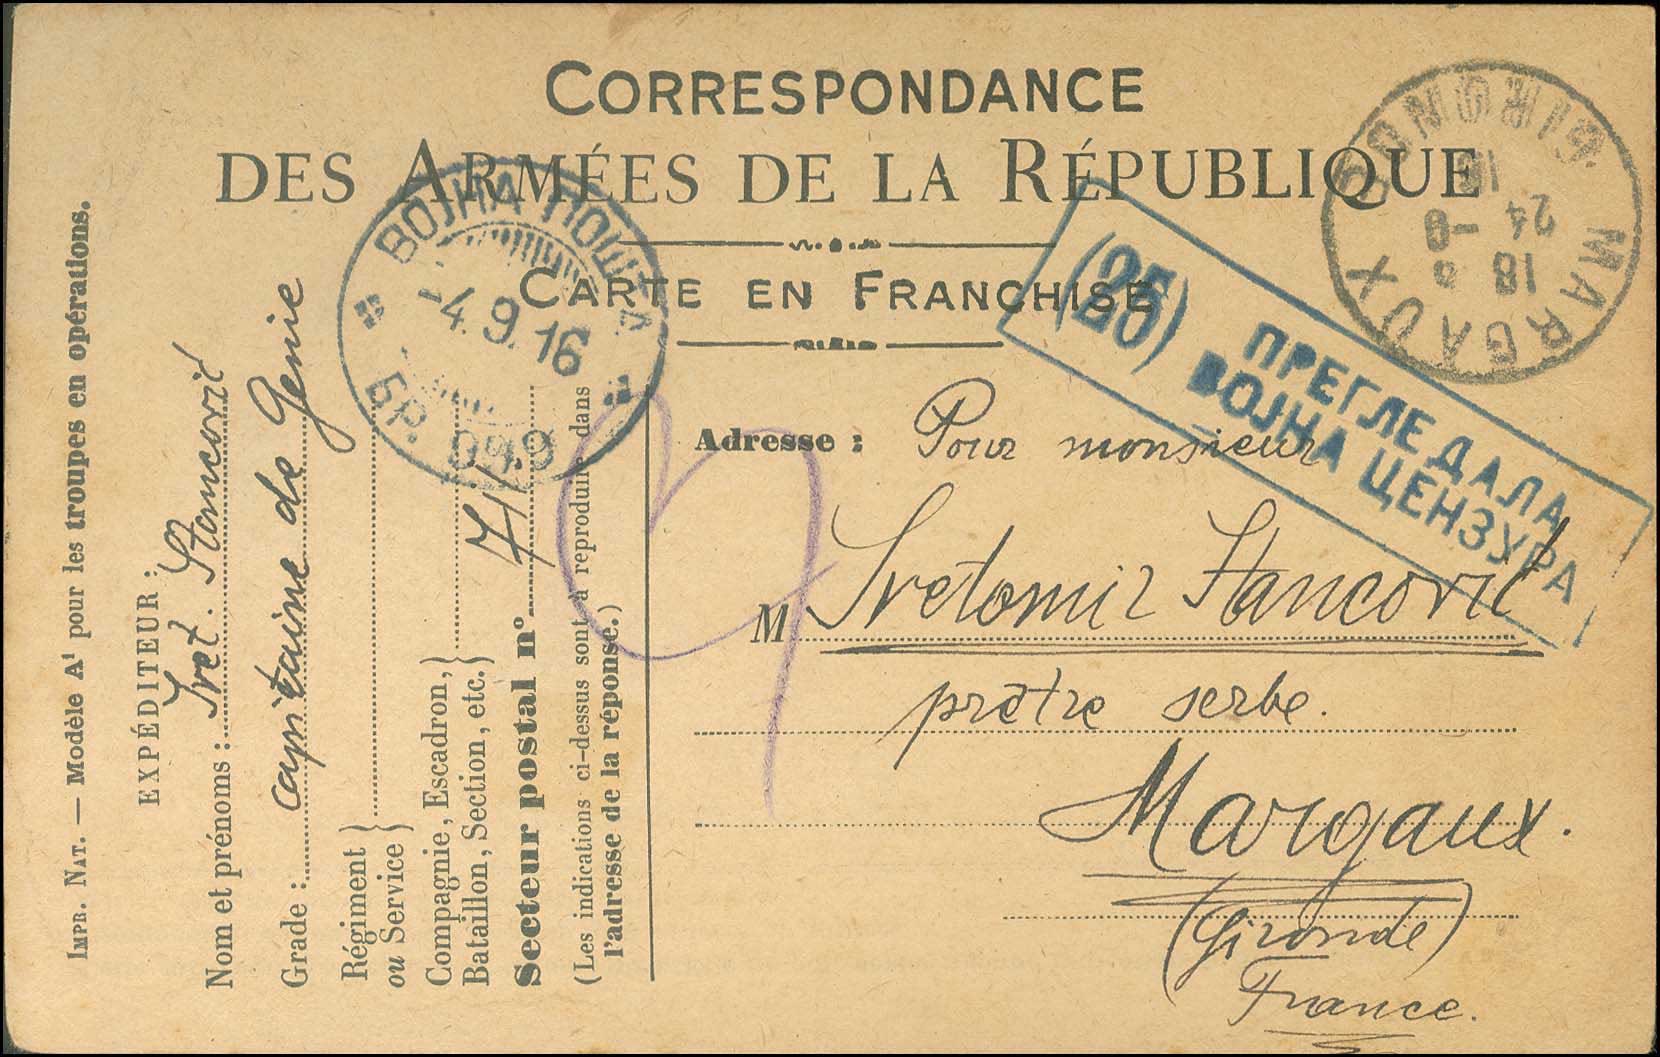 CORRESPONDANCE
DES ARMÉES DE LA RÉPUBLIQUE
CARTE EN FRANCHISE
Adresse : Pour monsieur
M Svetomir Stancović
prêtre serbe.
Margaux.
(Gironde)
France.
IMPR. NAT. — Modèle A¹ pour les troupes en opérations.
EXPÉDITEUR :
Nom et prénoms : Svet. Stancović
Grade : capitaine de Genie
Régiment
ou Service }
Compagnie, Escadron,
Bataillon, Section, etc. }
Secteur postal n°
(Les indications ci-dessus sont à reproduire dans
l'adresse de la réponse.)
ВОЈНА ПОШТА
-4. 9. 16
БР.
(25)
ПРЕГЛЕДАЛА
ВОЈНА ЦЕНЗУРА
MARGAUX
GIRONDE
18
24 -9